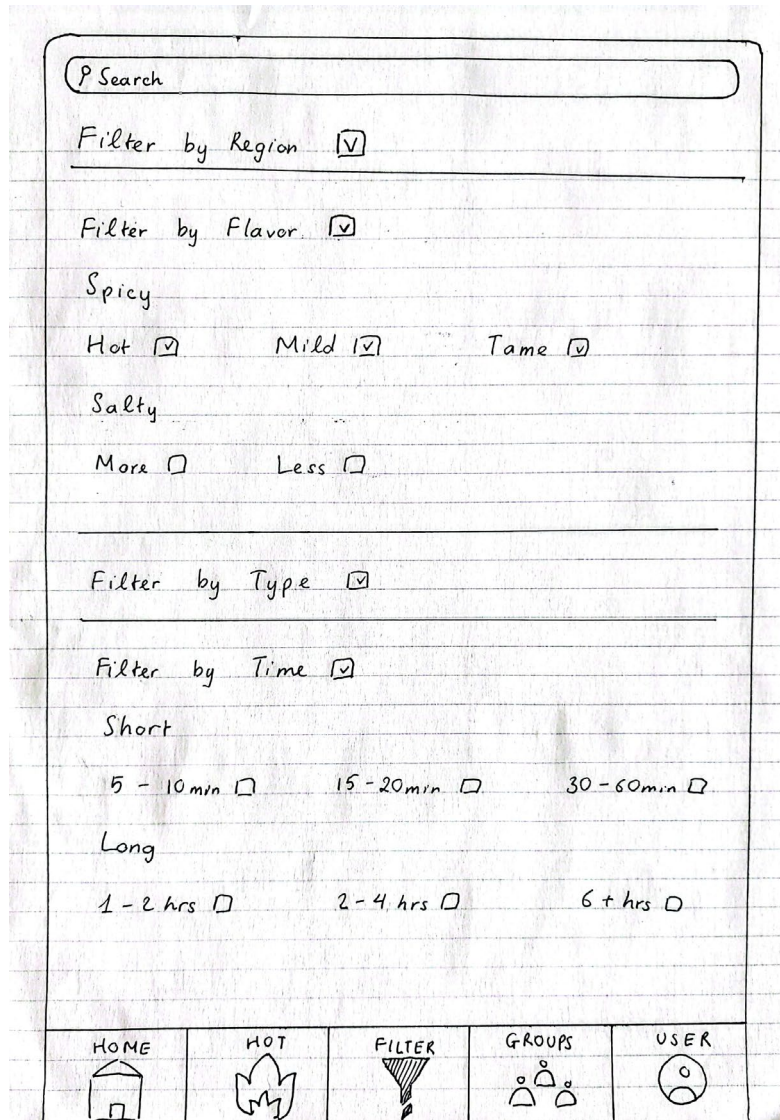 Search
Filter by Region
Filter by Flavor
Spicy
Hot Mild Tame
Salty
More Less
Filter by Type
Filter by Time
Short
5 - 10 min 15 - 20 min 30 - 60 min
Long
1 - 2 hrs 2 - 4 hrs 6 + hrs
HOME HOT FILTER GROUPS USER